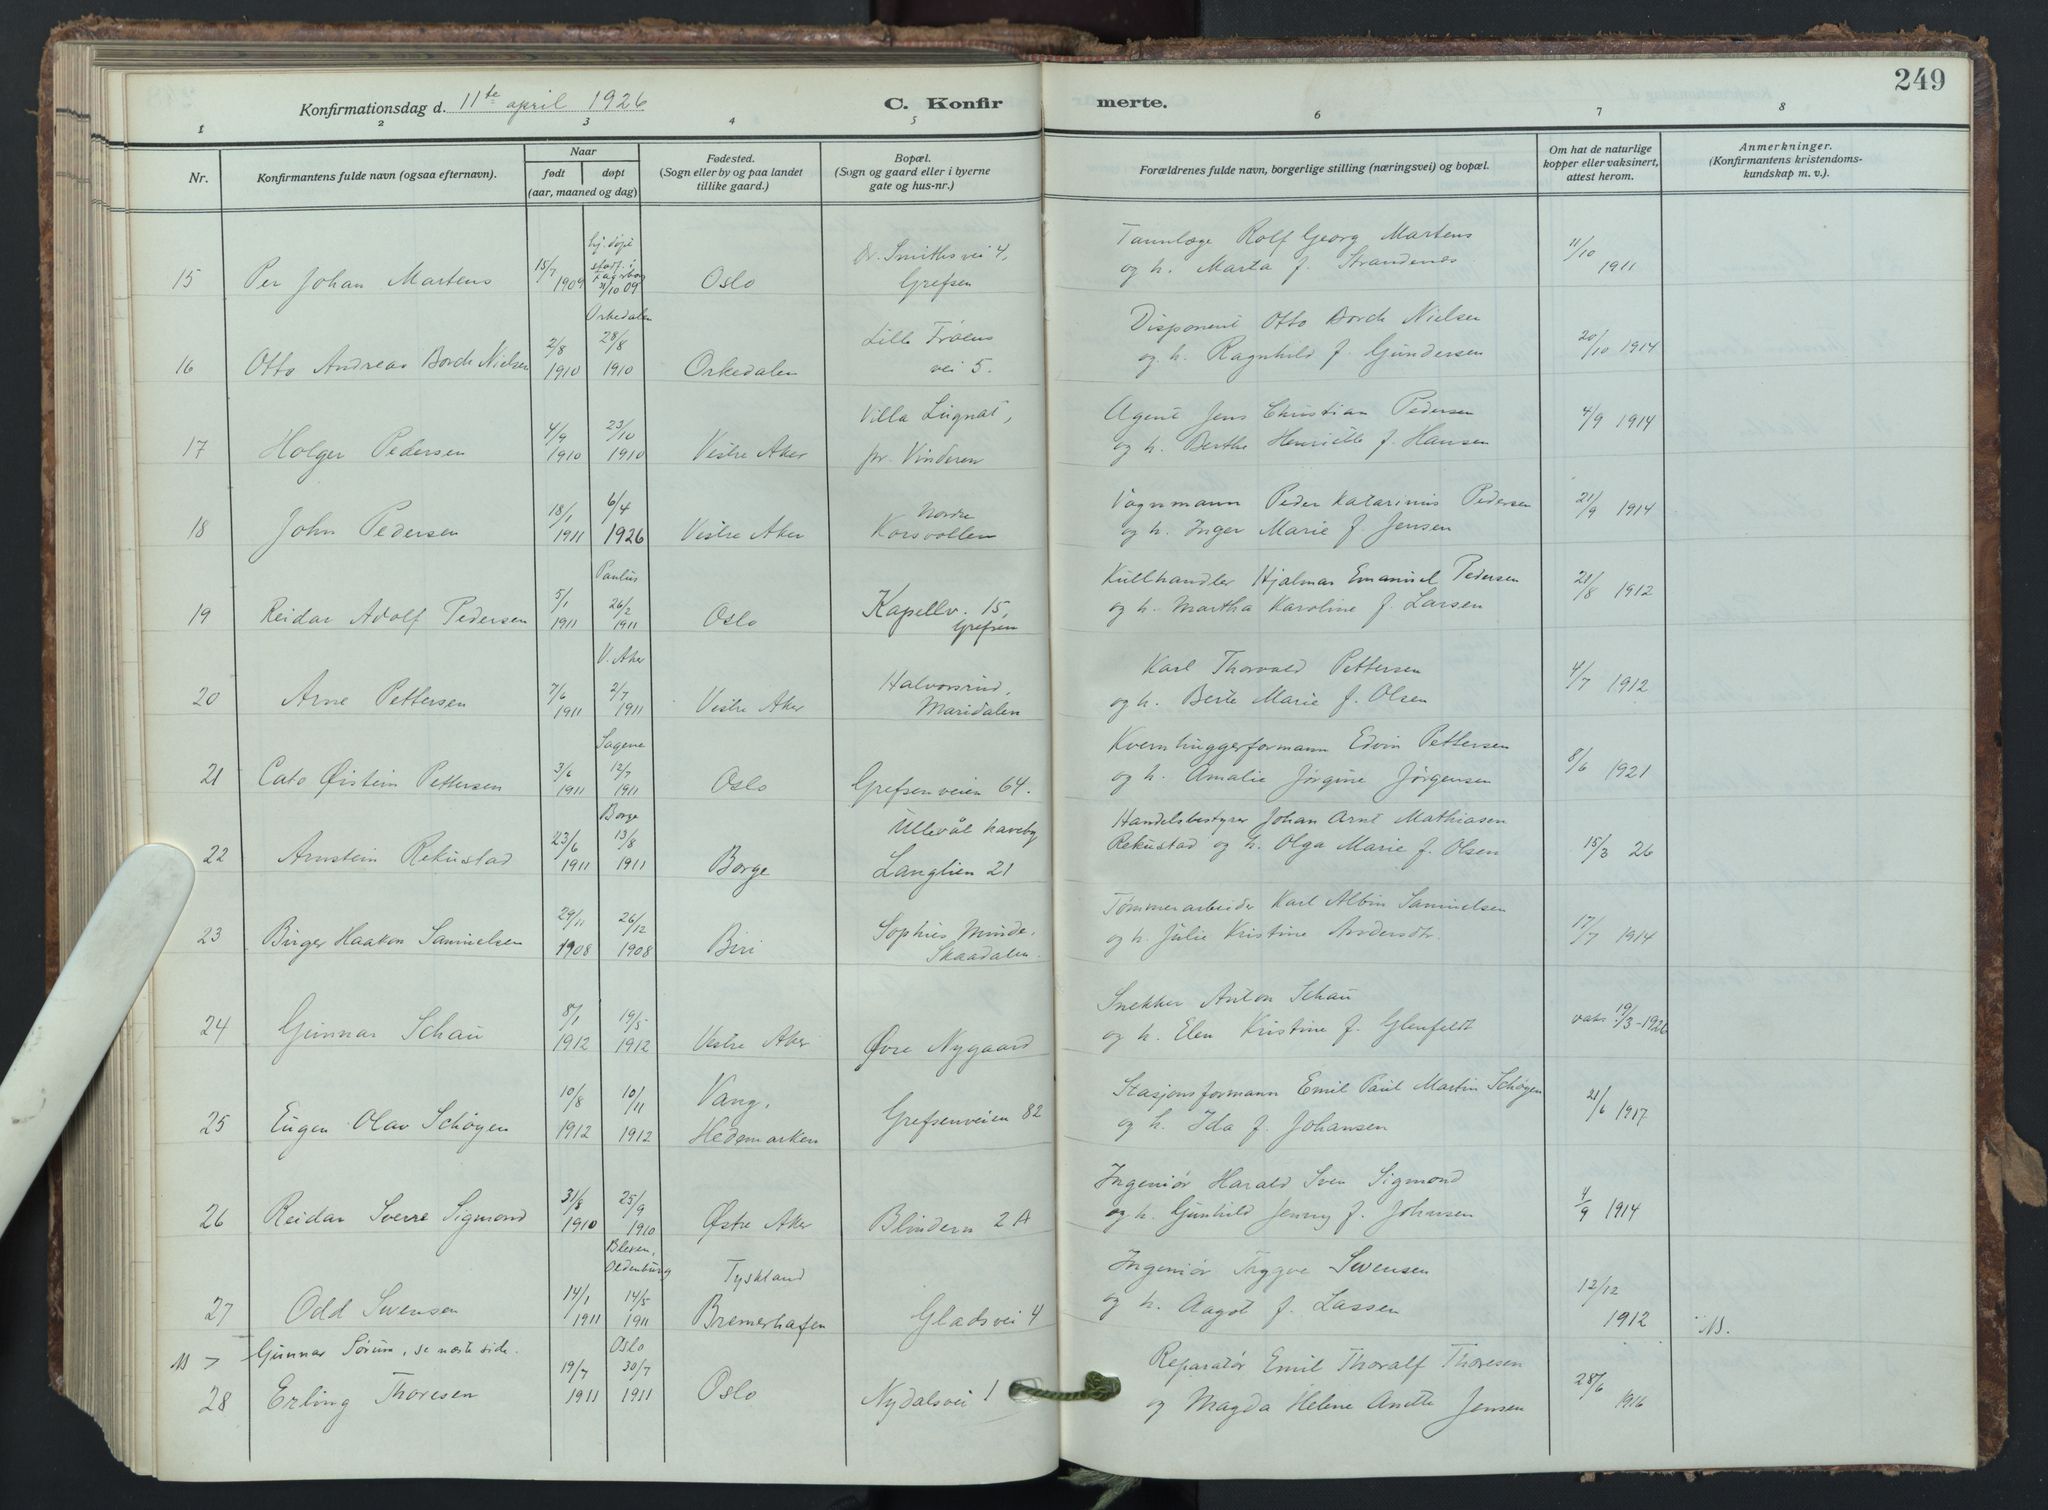 249
Konfirmationsdag d. 11te april 1926 C. Konfir merte.
1 2 3 4 5 6 7 8
Nr. Konfirmantens fulde navn (ogsaa efternavn). Naar født døpt (aar, maaned og dag) Fødested. (Sogn eller by og paa landet tillike gaard.) Bopæl. (Sogn og gaard eller i byerne gate og hus-nr.) Forældrenes fulde navn, borgerlige stilling (næringsvei) og bopæl. Om hat de naturlige kopper eller vaksinert, attest herom. Anmerkninger. (Konfirmantens kristendoms-kundskap m. v.).
hj. døpt
stadf. i Fagerborg Dr. Smiths vei 4, Tannlæge Rolf Georg Martens 11/10
15 Per Johan Martens 15/7 1909 31/10 09 Oslo Grefsen og h. Marta f. Strandenæs 1911
Orkedalen Lille Frøens Disponent Otto Borch Nielsen
16 Otto Andreas Borch Nielsen 2/8 1910 28/8 1910 Orkedalen vei 5. og h. Ragnhild f. Gundersen 20/10 1914
Villa Lugnat, Agent Jens Christian Pedersen
17 Holger Pedersen 4/9 1910 23/10 1910 Vestre Aker pr. Vinderen og h. Berthe Henriette f. Hansen 4/9 1914
Nordre Vognmann Peder Katarinus Pedersen
18 John Pedersen 18/1 1911 6/4 1926 Vestre Aker Korsvollen og h. Inger Marie f. Jensen 21/9 1914
Paulus Kullhandler Hjalmar Emanuel Pedersen
19 Reidar Adolf Pedersen 5/1 1911 26/2 1911 Oslo Kapellv. 15, Grefsen og h. Martha Karoline f. Larsen 28/8 1912
V. Aker Halvorsrud, Karl Thorvald Pettersen
20 Arne Pettersen 7/6 1911 2/7 1911 Vestre Aker Maridalen og h. Berte Marie f. Olsen 4/7 1912
Sagene Kvernhuggerformann Edvin Pettersen
21 Cato Øistein Pettersen 3/6 1911 12/7 1911 Oslo Grefsenveien 64. og h. Amalie Jørgine Jørgensen 8/6 1921
Borge Ullevål haveby Handelsbestyrer Johan Arnt Mathiasen
22 Arnstein Rekustad 23/6 1911 13/8 1911 Borge Langlien 21 Rekustad og h. Olga Marie f. Olsen 15/3 26
Sophus Minde, Tømmerarbeider Karl Albin Samuelsen
23 Birger Haakon Samuelsen 29/11 1908 26/12 1908 Biri Skaadalen. og h. Julie Kristine Andersdtr. 17/7 1914
Snekker Anton Schau
24 Gunnar Schau 8/1 1912 19/5 1912 Vestre Aker Øvre Nygaard og h. Elen Kristine f. Glenfeldt vaks. 19/3-1926
Vang, Stasjonsformann Emil Paul Martin Schøyen
25 Eugen Olav Schøyen 10/8 1912 10/11 1912 Hedemarken Grefsenveien 82 og h. Ida f. Johansen 21/6 1917
Ingeniør Harald Sven Sigmond
26 Reidar Sverre Sigmond 31/8 1910 25/9 1910 Østre Aker Blindern 2 A og h. Gunhild Jenny f. Johnsen 4/9 1914
Blexen, Oldenburg Tyskland Ingeniør Trygve Svensen
27 Odd Svensen 14/1 1911 14/5 1911 Bremerhafen Gladsvei 4 og h. Aagot f. Lassen 12/12 1912 NB.
NB > Gunnar Sørum, se næste side. Oslo Reparatør Emil Thoralf Thoresen
28 Erling Thoresen 19/7 1911 30/7 1911 Oslo Nydalsvei 1 og Magda Helene Jensen 28/6 1916